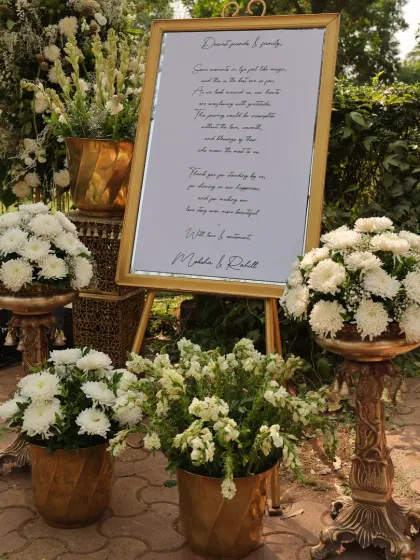 Dearest friends & family,
Some moments in life feel like magic,
and this is the best one so far,
As we look around us, our hearts
are overflowing with gratitude,
This journey would be incomplete
without the love, warmth,
and blessings of those
who mean the most to us.
Thank you for standing by us,
for sharing in our happiness,
and for making our
love story even more beautiful
With love & excitement,
& Rahill